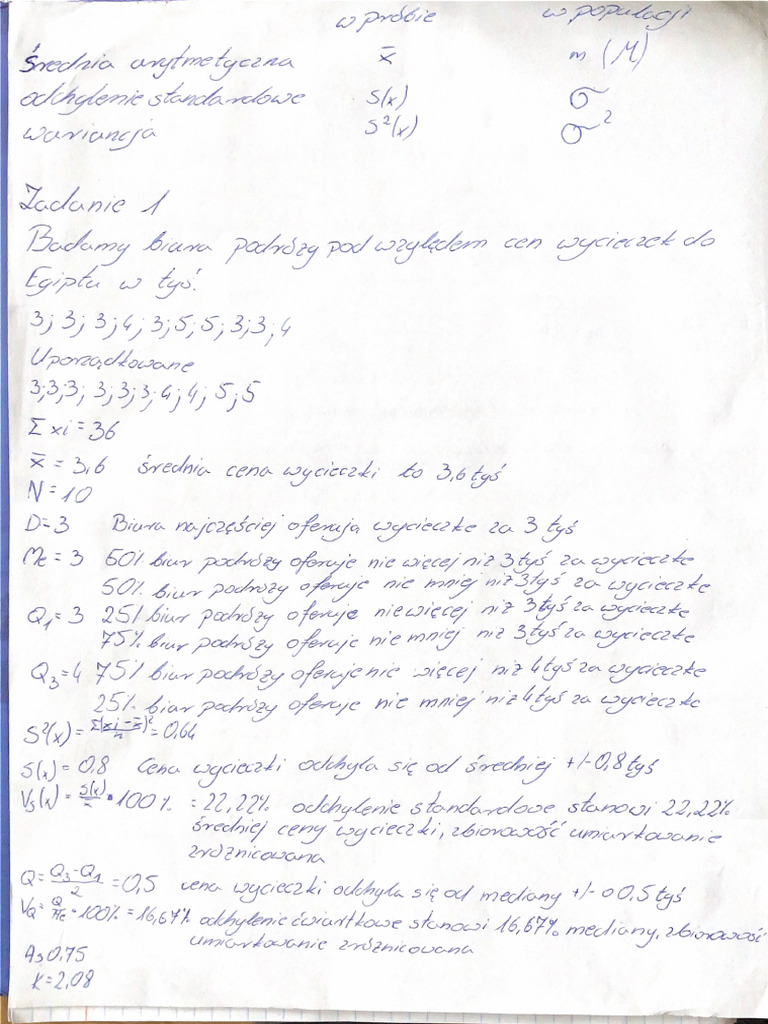 w próbie w populacji
średnia arytmetyczna x̄ m (M)
odchylenie standardowe S(x) σ
wariancja S²(x) σ²
Zadanie 1
Badamy biura podróży pod względem cen wycieczek do
Egiptu w tyś.
3; 3; 3; 4; 3; 5; 5; 3; 3; 4
Uporządkowane
3;3;3; 3;3;3; 4; 4; 5; 5
Σ xi = 36
x̄ = 3,6 średnia cena wycieczki to 3,6 tyś
N = 10
D=3 Biura najczęściej oferują wycieczkę za 3 tyś
Me = 3 50% biur podróży oferuje nie więcej niż 3 tyś za wycieczkę
50% biur podróży oferuje nie mniej niż 3 tyś za wycieczkę
Q₁=3 25% biur podróży oferuje nie więcej niż 3 tyś za wycieczkę
75% biur podróży oferuje nie mniej niż 3 tyś za wycieczkę
Q₃=4 75% biur podróży oferuje nie więcej niż 4 tyś za wycieczkę
25% biur podróży oferuje nie mniej niż 4 tyś za wycieczkę
S²(x) = Σ(xi-x̄)²/n = 0,64
S(x) = 0,8 Cena wycieczki odchyla się od średniej +/- 0,8 tyś
Vs(x) = S(x)/x̄ • 100% = 22,22% odchylenie standardowe stanowi 22,22%
średniej ceny wycieczki, zbiorowość umiarkowanie
zróżnicowana
Q = Q₃-Q₁/2 = 0,5 cena wycieczki odchyla się od mediany +/- o 0,5 tyś
VQ = Q/Me • 100% = 16,67% odchylenie ćwiartkowe stanowi 16,67% mediany, zbiorowość
umiarkowanie zróżnicowana
As 0,75
K = 2,08